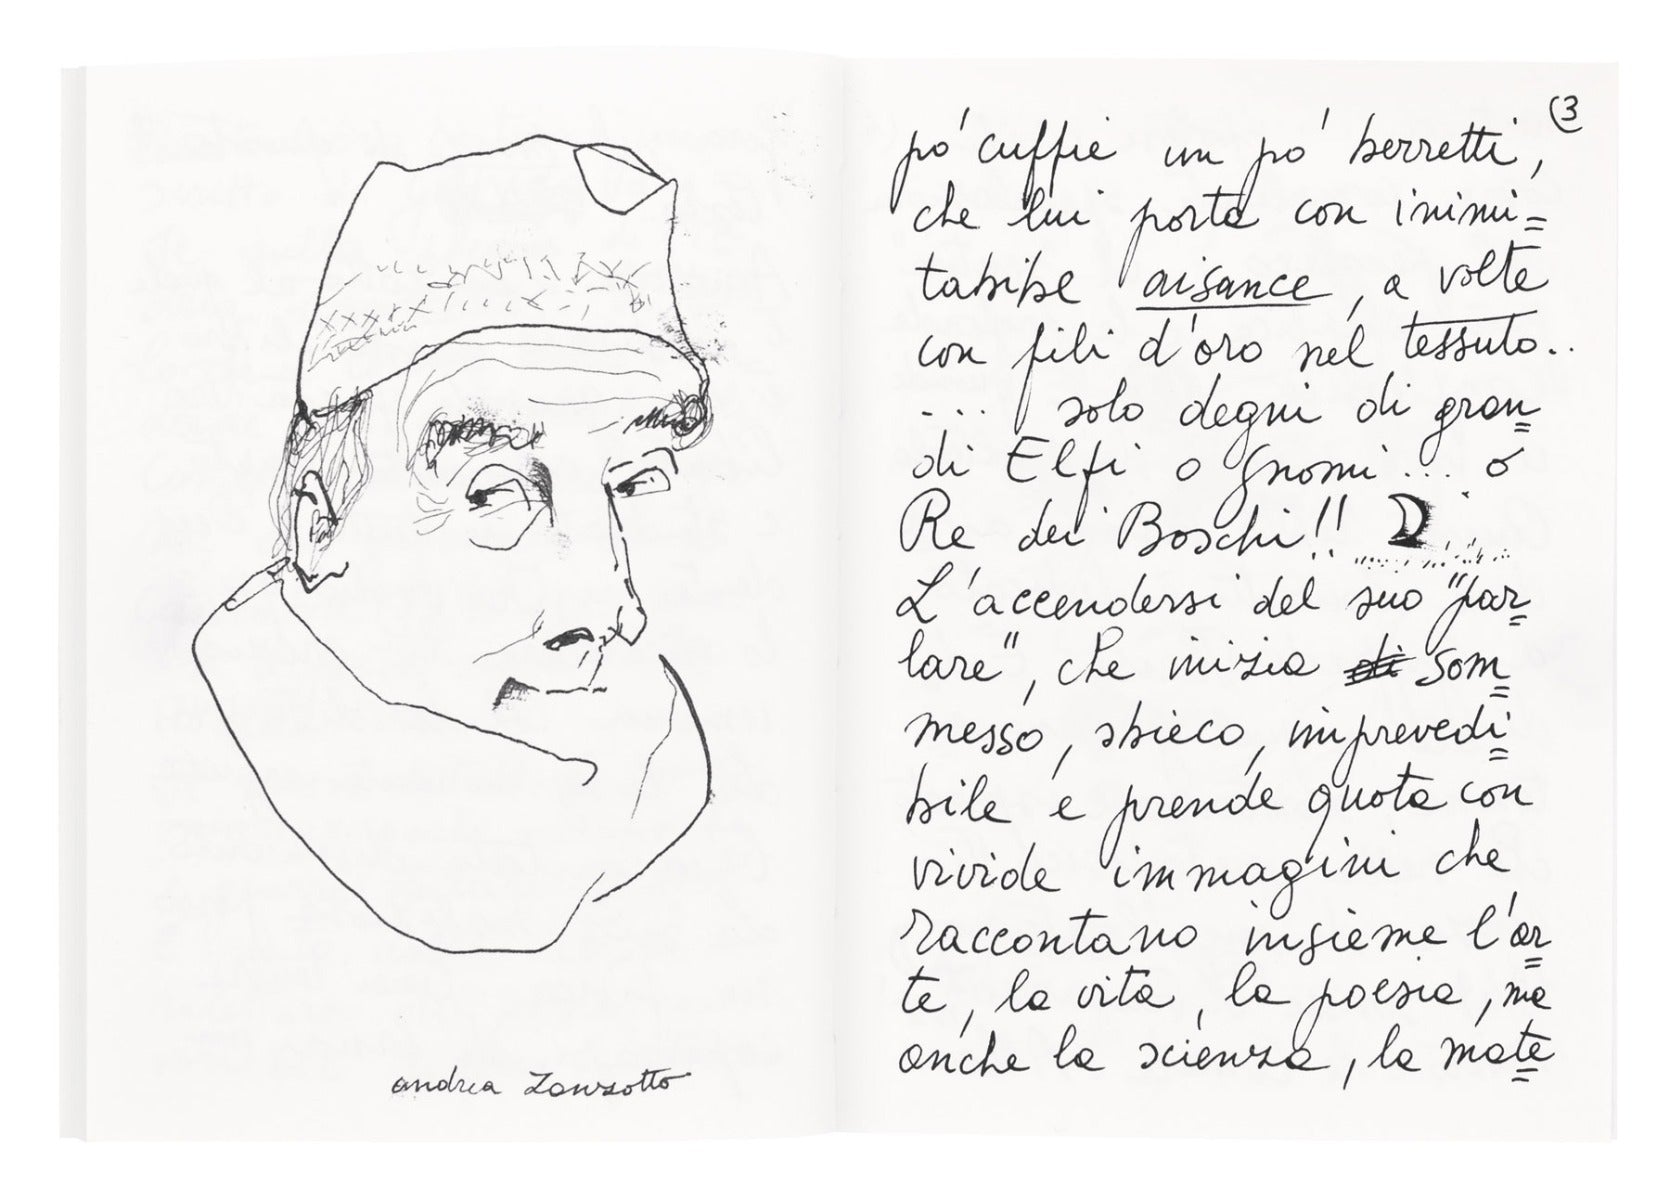 andrea Zanzotto
(3
pó cuffie un pó berretti,
che lui porta con inimi=
tabibe aisance, a volte
con fili d'oro nel tessuto..
... solo degni di gran=
di Elfi o Gnomi... o
Re dei Boschi!!
L'accendersi del suo "par=
lare", che inizia di som=
messo, sbieco, imprevedi=
bile e prende quota con
vivide immagini che
raccontano insieme l'ar=
te, la vita, la poesia, ma
anche la scienza, la mate=